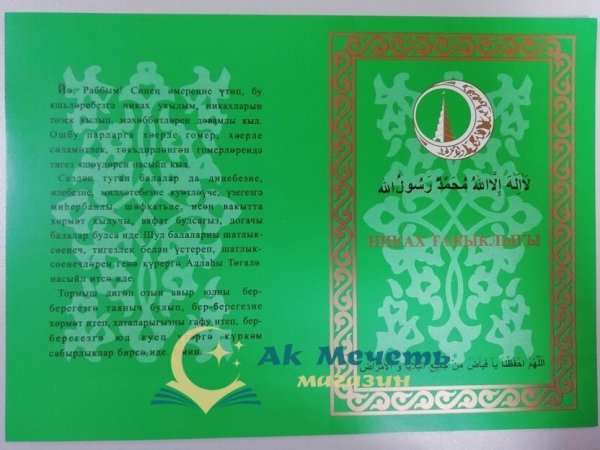 Йә, Раббым! Синең әмереңне үтәп, бу
яшьләребезгә никах укыдым, никахларын
төзек кылып, мәхәббәтләрен дәвамлы кыл.
Ошбу парларга хәерле гомер, хәерле
сәламәтлек, тәкъдирләнгән гомерләрендә
тигез яшәүләрен насыйп кыл.
Сездән туган балалар да динебезне,
илебезне, милләтебезне куәтләүче, үзегезгә
миһербанлы, шәфкатьле, исән вакытта
хөрмәт кылучы, вафат булсагыз, догачы
балалар булса иде. Шул балаларны шатлык-
сөенеч, тигезлек белән үстереп, шатлык-
сөенечләрен генә күрергә Аллаһы Тәгалә
насыйп итсә иде.
Тормыш дигән озын авыр юлны бер-
берегезгә таяныч булып, бер-берегезне
хөрмәт итеп, хаталарыгызны гафу итеп, бер-
берегезгә юл куеп үтәргә күркәм
сабырлыклар бирсә иде. Амин.
لا إله إلا الله محمد رسول الله
НИКАХ ТАНЫКЛЫГЫ
اللهم احفظنا يا فياض من جميع البلايا و الامراض
Ак Мечеть
магазин